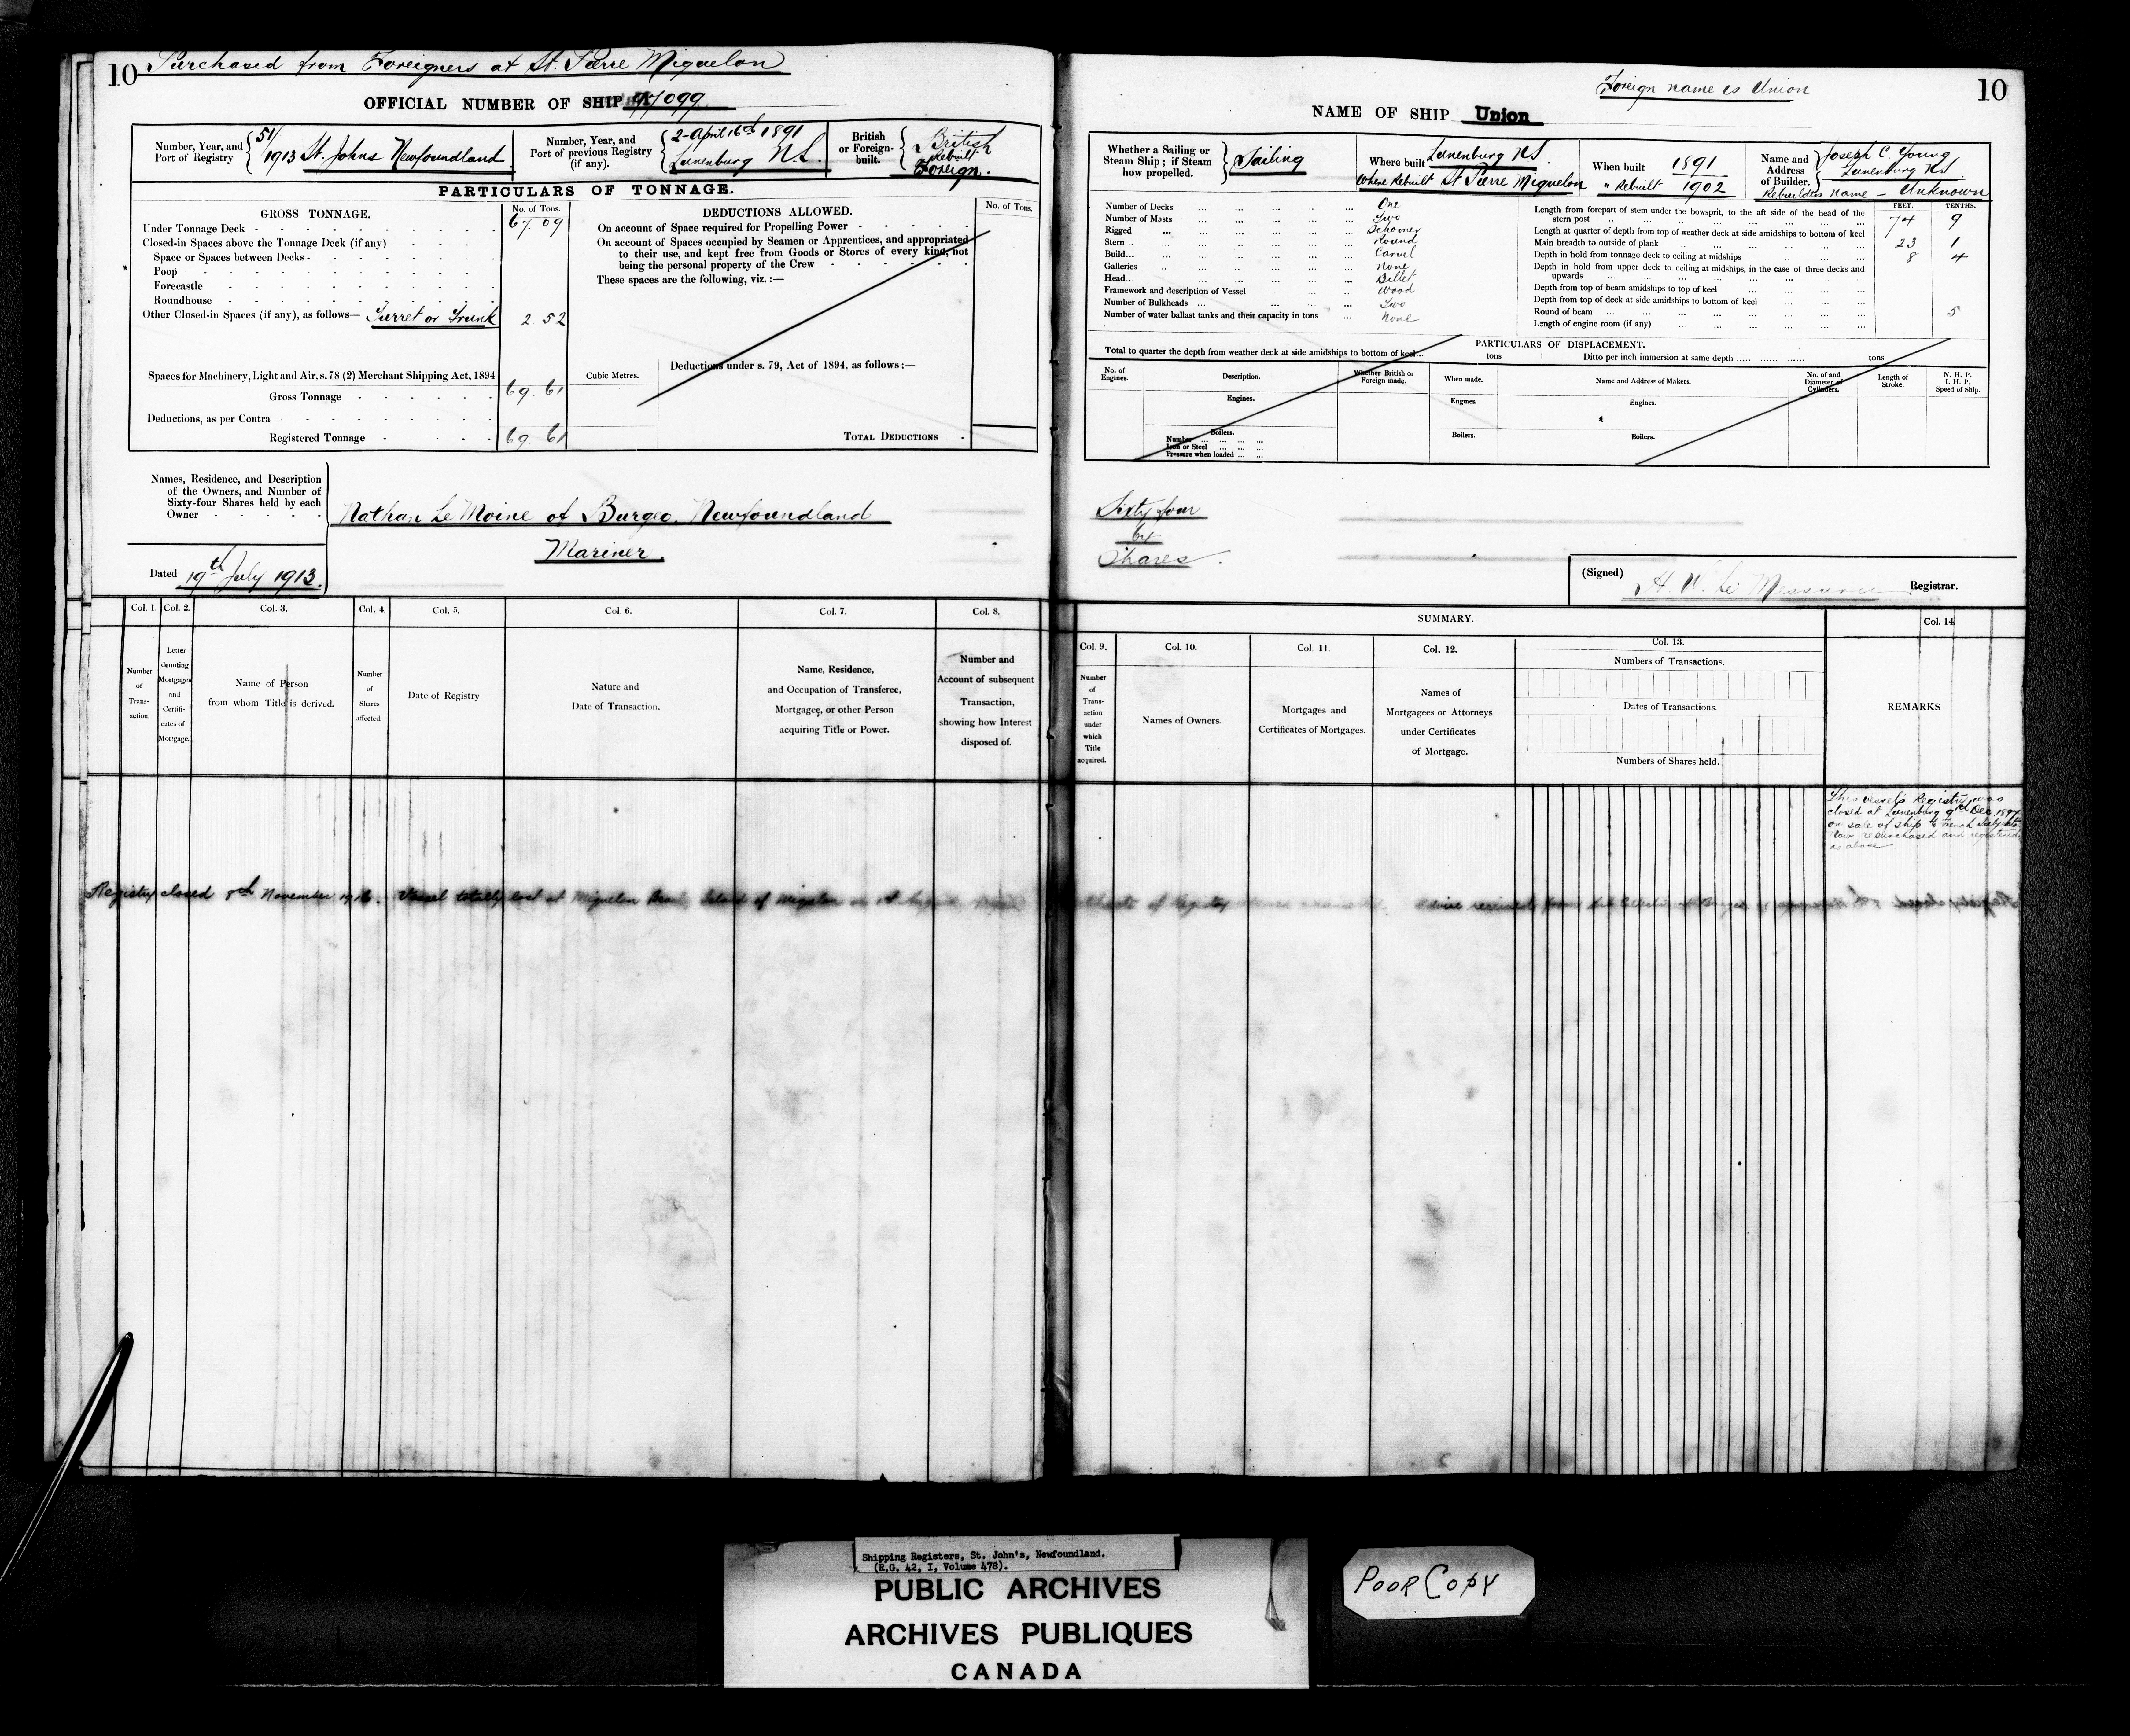 10 Purchased from Foreigners at St. Pierre Miquelon
OFFICIAL NUMBER OF SHIP 97099
Number, Year, and Port of Registry 51/1913 St. Johns Newfoundland
Number, Year, and Port of previous Registry (if any). 2 - April 16th 1891 Lunenburg N.S.
British or Foreign-built. British Rebuilt Foreign.
PARTICULARS OF TONNAGE.
GROSS TONNAGE. No. of Tons.
Under Tonnage Deck 67.09
Closed-in Spaces above the Tonnage Deck (if any)
Space or Spaces between Decks
Poop
Forecastle
Roundhouse
Other Closed-in Spaces (if any), as follows— Turret or Trunk 2.52
Spaces for Machinery, Light and Air, s. 78 (2) Merchant Shipping Act, 1894
Gross Tonnage 69.61
Deductions, as per Contra
Registered Tonnage 69.61
DEDUCTIONS ALLOWED. No. of Tons.
On account of Space required for Propelling Power
On account of Spaces occupied by Seamen or Apprentices, and appropriated
to their use, and kept free from Goods or Stores of every kind, not
being the personal property of the Crew
These spaces are the following, viz.:—
Cubic Metres.
Deductions under s. 79, Act of 1894, as follows:—
TOTAL DEDUCTIONS
Names, Residence, and Description
of the Owners, and Number of
Sixty-four Shares held by each
Owner
Nathan Le Moine of Burgeo. Newfoundland
Mariner.
Dated 19th July 1913.
Col. 1. Col. 2. Col. 3. Col. 4. Col. 5. Col. 6. Col. 7. Col. 8.
Number of Trans-action.
Letter denoting Mortgages and Certifi-cates of Mortgage.
Name of Person from whom Title is derived.
Number of Shares affected.
Date of Registry
Nature and Date of Transaction.
Name, Residence, and Occupation of Transferee, Mortgagee, or other Person acquiring Title or Power.
Number and Account of subsequent Transaction, showing how Interest disposed of.
Registry closed 8th November 1916. Vessel totally lost at Miquelon Island of Miquelon
Foreign name is Union 10
NAME OF SHIP Union
Whether a Sailing or Steam Ship; if Steam how propelled. Sailing
Where built Lunenburg NS
Where Rebuilt St Pierre Miquelon
When built 1891
" Rebuilt 1902
Name and Address of Builder. Joseph C. Young Lunenburg N.S.
Rebuilders name - Unknown
Number of Decks One
Number of Masts Two
Rigged Schooner
Stern Round
Build Carvel
Galleries None
Head Billet
Framework and description of Vessel Wood
Number of Bulkheads Two
Number of water ballast tanks and their capacity in tons None
FEET. TENTHS.
Length from forepart of stem under the bowsprit, to the aft side of the head of the
stern post 74 9
Length at quarter of depth from top of weather deck at side amidships to bottom of keel
Main breadth to outside of plank 23 1
Depth in hold from tonnage deck to ceiling at midships 8 4
Depth in hold from upper deck to ceiling at midships, in the case of three decks and
upwards
Depth from top of beam amidships to top of keel
Depth from top of deck at side amidships to bottom of keel
Round of beam 5
Length of engine room (if any)
PARTICULARS OF DISPLACEMENT.
Total to quarter the depth from weather deck at side amidships to bottom of keel tons
Ditto per inch immersion at same depth tons
No. of Engines.
Description.
Whether British or Foreign made.
When made.
Name and Address of Makers.
No. of and Diameter of Cylinders.
Length of Stroke.
N. H. P.
I. H. P.
Speed of Ship.
Engines. Engines. Engines.
Boilers. Boilers. Boilers.
Number
Iron or Steel
Pressure when loaded
Sixty four
64
Shares.
(Signed) H. W. Le Messurier Registrar.
SUMMARY.
Col. 9. Col. 10. Col. 11. Col. 12. Col. 13. Col. 14.
Number of Trans-action under which Title acquired.
Names of Owners.
Mortgages and Certificates of Mortgages.
Names of Mortgagees or Attorneys under Certificates of Mortgage.
Numbers of Transactions.
Dates of Transactions.
Numbers of Shares held.
REMARKS
This vessel's Registry was
closed at Lunenburg 9th Dec. 1897
on sale of ship to French Subjects
Now repurchased and registered
as above
of Registry
Shipping Registers, St. John's, Newfoundland.
(R.G. 42, I, Volume 478).
PUBLIC ARCHIVES
ARCHIVES PUBLIQUES
CANADA
POOR COPY